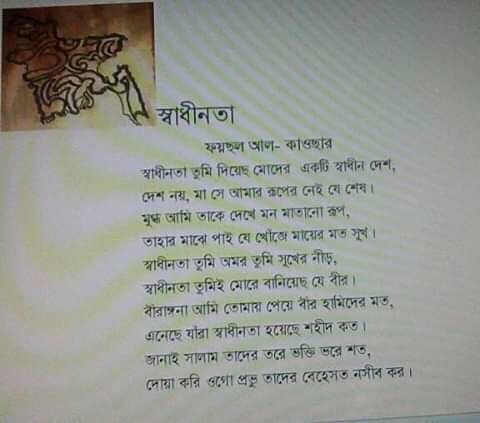 স্বাধীনতা
ফয়ছল আল- কাওছার
স্বাধীনতা তুমি দিয়েছ মোদের একটি স্বাধীন দেশ,
দেশ নয়, মা সে আমার রূপের নেই যে শেষ।
মুগ্ধ আমি তাকে দেখে মন মাতানো রূপ,
তাহার মাঝে পাই যে খোঁজে মায়ের মত সুখ।
স্বাধীনতা তুমি অমর তুমি সুখের নীড়,
স্বাধীনতা তুমিই মোরে বানিয়েছ যে বীর।
বীরাঙ্গনা আমি তোমায় পেয়ে বীর হামিদের মত,
এনেছে যাঁরা স্বাধীনতা হয়েছে শহীদ কত।
জানাই সালাম তাদের তরে ভক্তি ভরে শত,
দোয়া করি ওগো প্রভু তাদের বেহেসত নসীব কর।